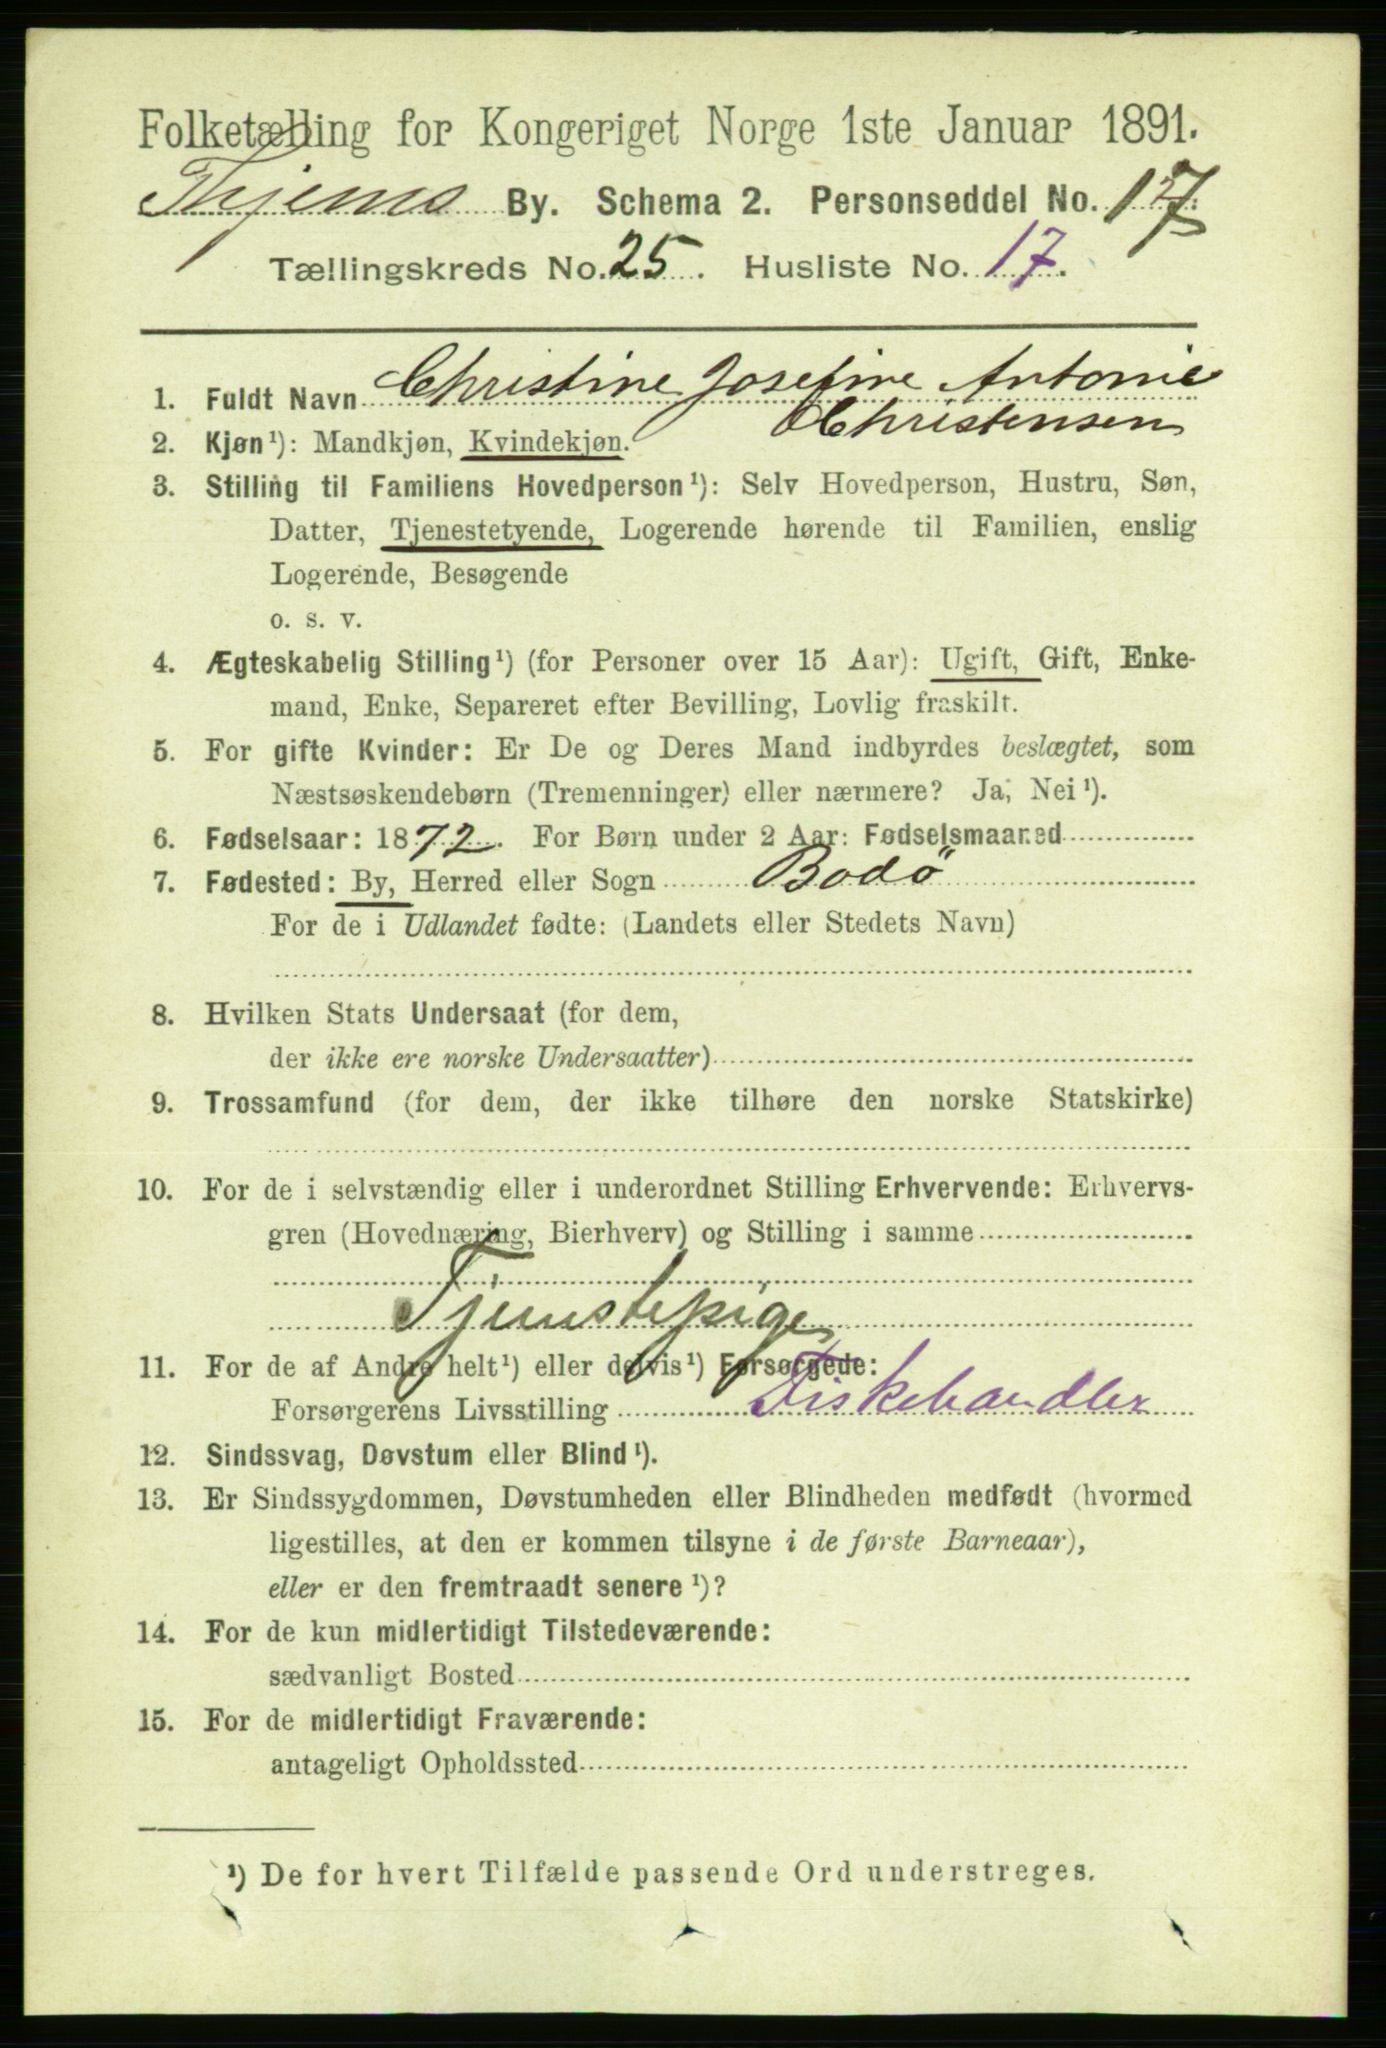 Folketælling for Kongeriget Norge 1ste Januar 1891.
By. Schema 2. Personseddel No. 17
Tællingskreds No. 25. Husliste No. 17.
1. Fuldt Navn Christine Josefine Antonie
Christensen
2. Kjøn¹): Mandkjøn, Kvindekjøn.
3. Stilling til Familiens Hovedperson¹): Selv Hovedperson, Hustru, Søn,
Datter, Tjenestetyende, Logerende hørende til Familien, enslig
Logerende, Besøgende
o. s. v.
4. Ægteskabelig Stilling¹) (for Personer over 15 Aar): Ugift, Gift, Enke-
mand, Enke, Separeret efter Bevilling, Lovlig fraskilt.
5. For gifte Kvinder: Er De og Deres Mand indbyrdes beslægtet, som
Næstsøskendebørn (Tremenninger) eller nærmere? Ja, Nei¹).
6. Fødselsaar: 1872. For Børn under 2 Aar: Fødselsmaaned
7. Fødested: By, Herred eller Sogn Bodö
For de i Udlandet fødte: (Landets eller Stedets Navn)
8. Hvilken Stats Undersaat (for dem,
der ikke ere norske Undersaatter)
9. Trossamfund (for dem, der ikke tilhøre den norske Statskirke)
10. For de i selvstændig eller i underordnet Stilling Erhvervende: Erhvervs-
gren (Hovednæring, Bierhverv) og Stilling i samme
Tjenstepige
11. For de af Andre helt¹) eller delvis¹) Forsørgede:
Forsørgerens Livsstilling Fiskehandler
12. Sindssvag, Døvstum eller Blind¹).
13. Er Sindssygdommen, Døvstumheden eller Blindheden medfødt (hvormed
ligestilles, at den er kommen tilsyne i de første Barneaar),
eller er den fremtraadt senere¹)?
14. For de kun midlertidigt Tilstedeværende:
sædvanligt Bosted
15. For de midlertidigt Fraværende:
antageligt Opholdssted
¹) De for hvert Tilfælde passende Ord understreges.